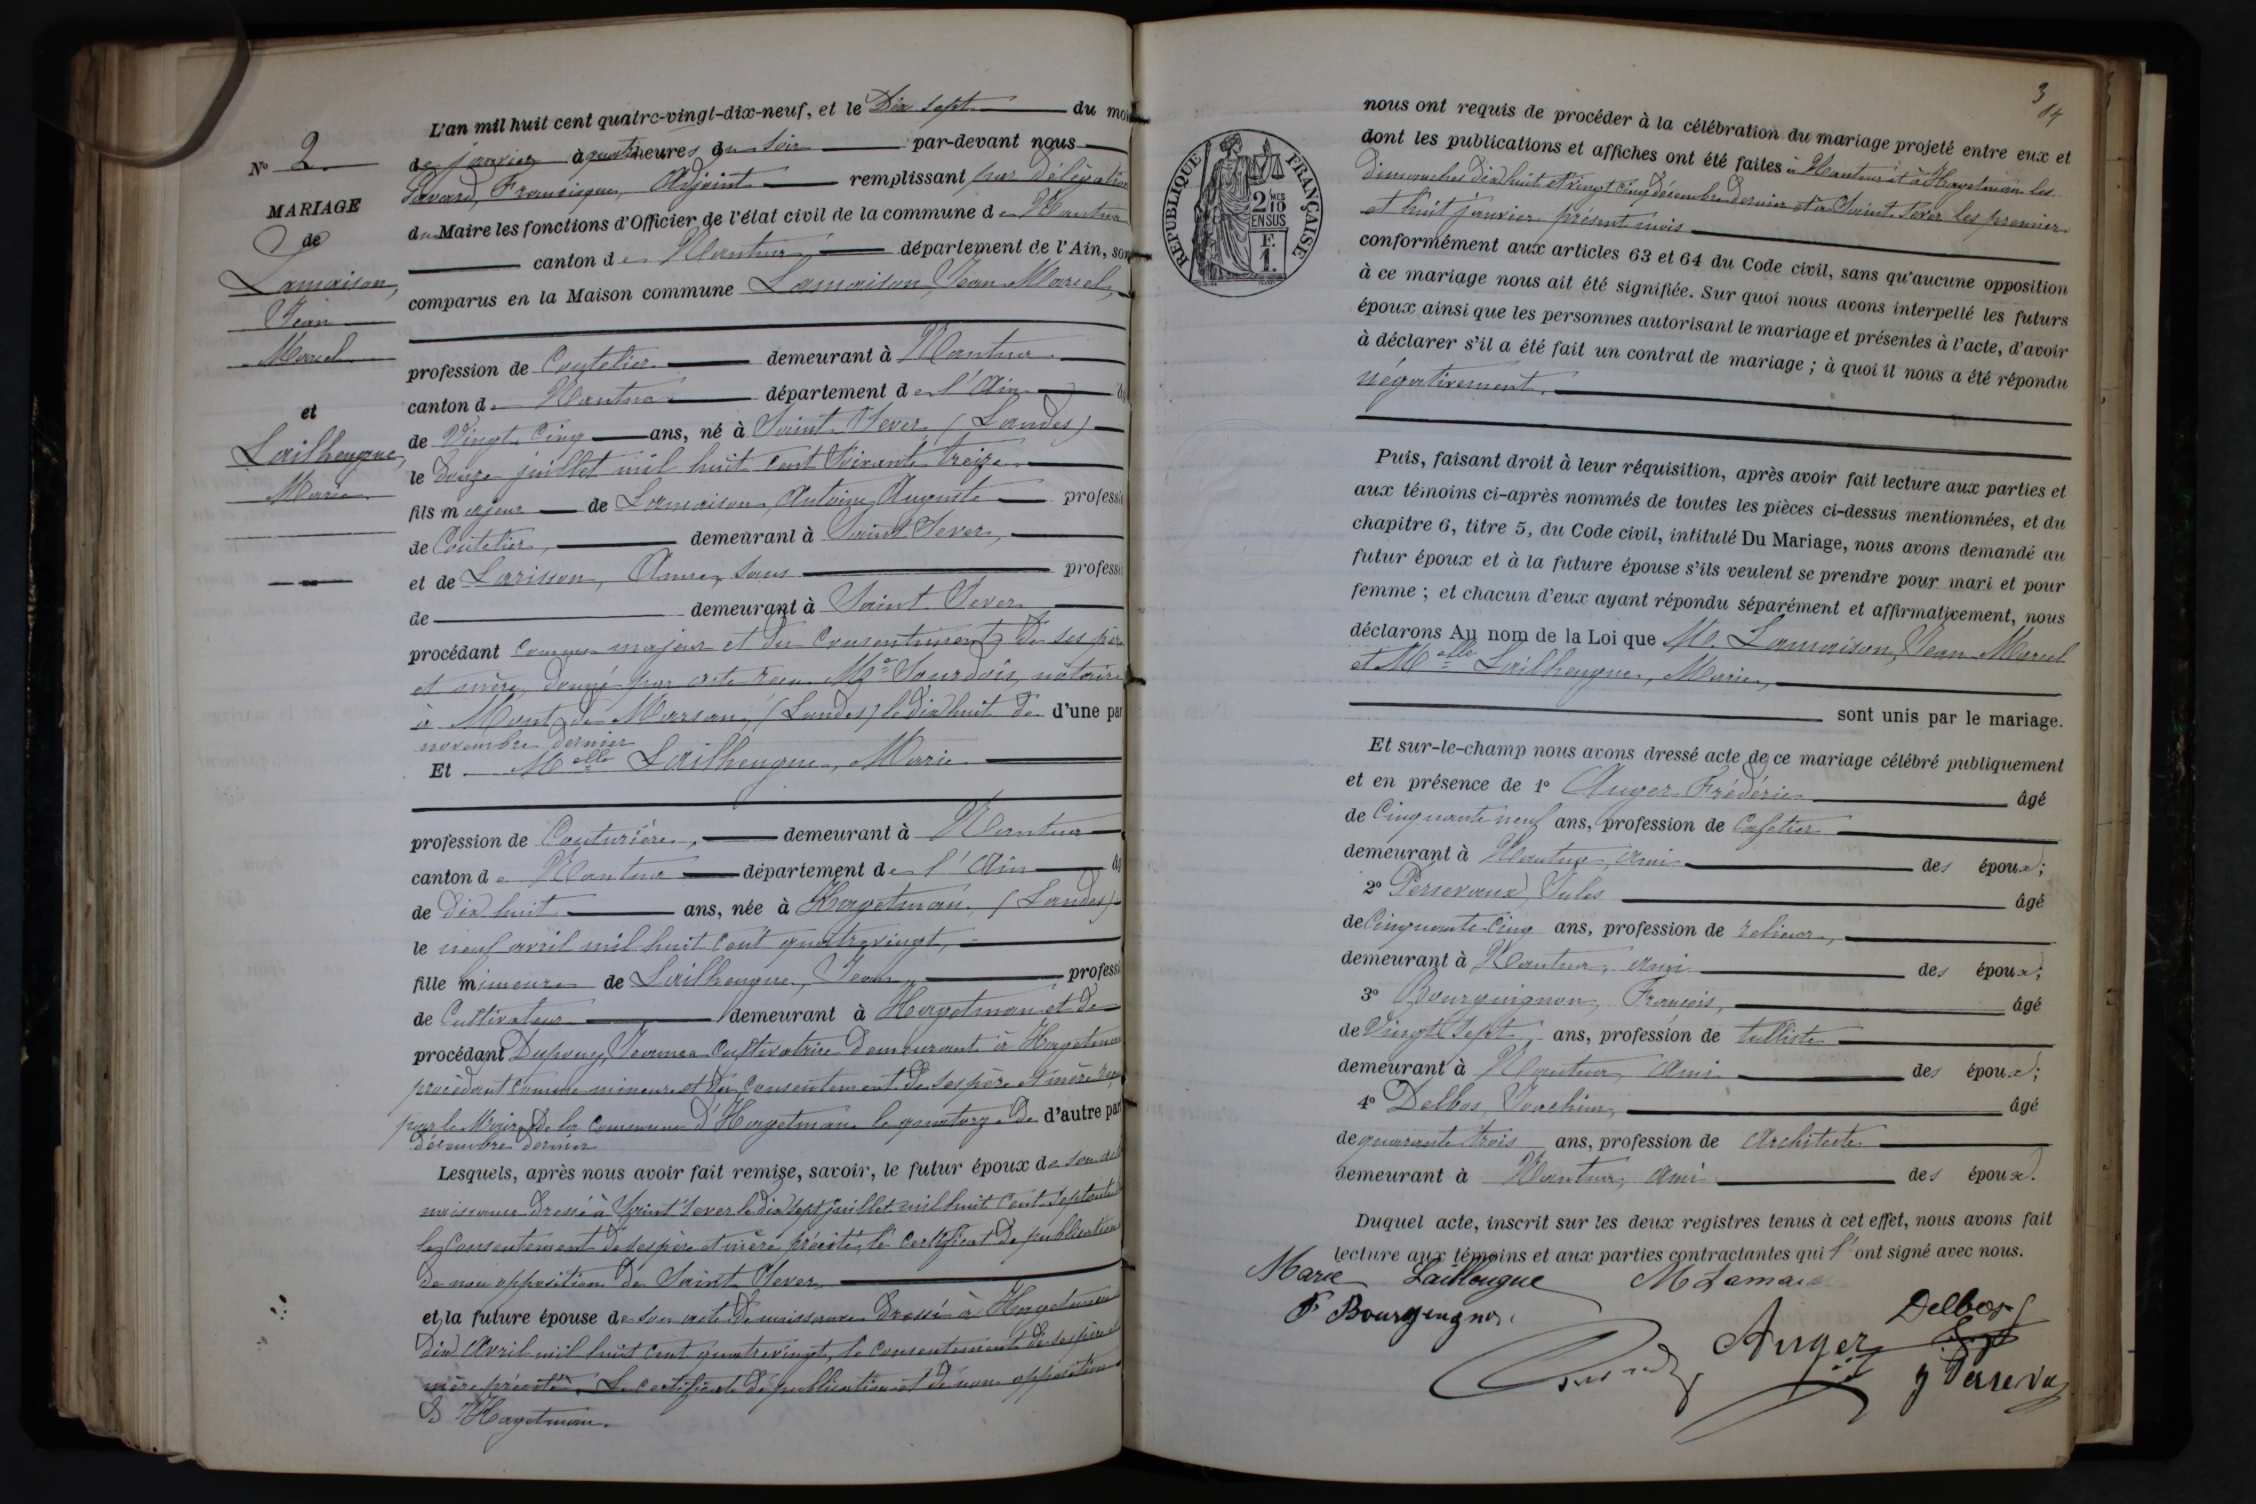 L'an mil huit cent quatre-vingt-dix-neuf, et le Dix sept du moi
de janvier à quatre heures du soir par-devant nous
Savard, Francisque, Adjoint remplissant par délégation
du Maire les fonctions d'Officier de l'état civil de la commune de Nantua
canton de Nantua département de l'Ain, son
comparus en la Maison commune Lamaison, Jean Marcel,
profession de Coutelier demeurant à Nantua
canton de Nantua département de l'Ain
de Vingt Cinq ans, né à Saint Sever (Landes)
le Douze juillet mil huit cent soixante treize
fils majeur de Lamaison, Antoine Auguste professi
de Coutelier, demeurant à Saint Sever,
et de Larisson, Anne, sans professi
de demeurant à Saint Sever
procédant comme majeur et du consentement de ses père
et mère, donné par acte reçu Me Sourdois, notaire
à Mont de Marsan, (Landes) le dix huit de d'une par
novembre dernier
Et Melle Lailheugue, Marie
profession de Couturière, demeurant à Nantua
canton de Nantua département de l'Ain
de dix huit ans, née à Hagetmau, (Landes)
le neuf avril mil huit cent quatrevingt,
fille mineure de Lailheugue, Jean, professi
de Cultivateur demeurant à Hagetmau et de
procédant Dupouy, Jeanne Cultivatrice demeurant à Hagetmau
procédant comme mineure et du consentement de ses père et mère reçu
par le Maire de la commune d'Hagetmau le quatorze de d'autre par
décembre dernier
Lesquels, après nous avoir fait remise, savoir, le futur époux de son acte
naissance dressé à Saint Sever le dix sept juillet mil huit cent septante
le consentement de ses père et mère précité, le certificat de publication
de non opposition de Saint Sever
et la future épouse de son acte de naissance dressé à Hagetmau
dix Avril mil huit cent quatrevingt, le consentement de ses père
mère précité, Le certificat de publication et de non opposition
d'Hagetmau.
No 2
MARIAGE
de
Lamaison,
Jean
Marcel
et
Lailheugue,
Marie
3
14
RÉPUBLIQUE FRANÇAISE
2 MES
10
EN SUS
F.
1.
nous ont requis de procéder à la célébration du mariage projeté entre eux et
dont les publications et affiches ont été faites à Nantua et à Hagetmau les
dimanches dix huit et vingt cinq décembre dernier et à Saint Sever les premier
et huit janvier présent mois
conformément aux articles 63 et 64 du Code civil, sans qu'aucune opposition
à ce mariage nous ait été signifiée. Sur quoi nous avons interpellé les futurs
époux ainsi que les personnes autorisant le mariage et présentes à l'acte, d'avoir
à déclarer s'il a été fait un contrat de mariage ; à quoi il nous a été répondu
négativement.
Puis, faisant droit à leur réquisition, après avoir fait lecture aux parties et
aux témoins ci-après nommés de toutes les pièces ci-dessus mentionnées, et du
chapitre 6, titre 5, du Code civil, intitulé Du Mariage, nous avons demandé au
futur époux et à la future épouse s'ils veulent se prendre pour mari et pour
femme ; et chacun d'eux ayant répondu séparément et affirmativement, nous
déclarons Au nom de la Loi que M. Lamaison, Jean Marcel
et Melle Lailheugue, Marie,
sont unis par le mariage.
Et sur-le-champ nous avons dressé acte de ce mariage célébré publiquement
et en présence de 1o Auger Frédéric âgé
de Cinquante neuf ans, profession de Cafetier
demeurant à Nantua, ami des époux;
2o Persevaux, Jules âgé
de Cinquante Cinq ans, profession de relieur,
demeurant à Nantua, ami des époux;
3o Bourguignon, François, âgé
de Vingt Sept ans, profession de tulliste
demeurant à Nantua, ami des époux;
4o Delbos, Joachim, âgé
de quarante trois ans, profession de Architecte
demeurant à Nantua, ami des époux.
Duquel acte, inscrit sur les deux registres tenus à cet effet, nous avons fait
lecture aux témoins et aux parties contractantes qui l'ont signé avec nous.
Marie Lailheugue M Lamais
F Bourguignon Delbos
Auger
J Perseva